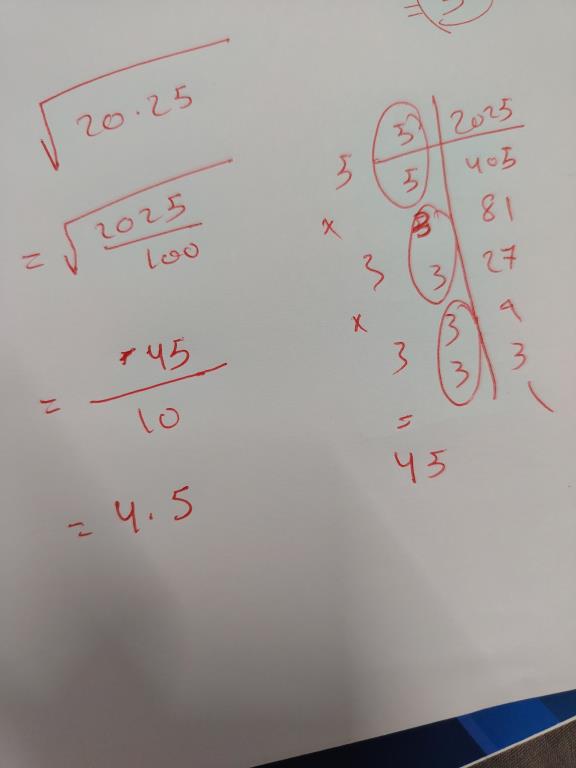 3
=
√20.25
= √2025/100
= 45/10
= 4.5
5 | 2025
5 5 | 405
× 3 | 81
3 3 | 27
× 3 | 9
3 3 | 3
1
=
45